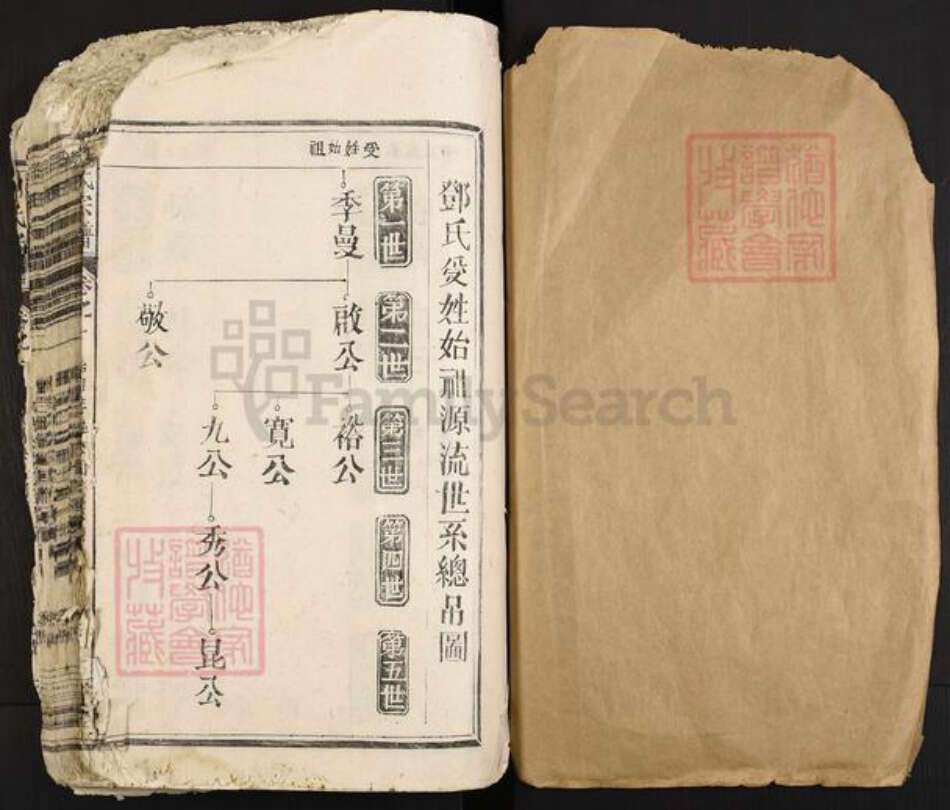 鄧氏受姓始祖源流世系總吊圖
受姓始祖
第一世
季曼
第二世
啟公
敬公
第三世
裕公
寬公
九公
第四世
秀公
第五世
昆公
氏宗譜
FamilySearch
譜學會
收藏
譜學會
收藏